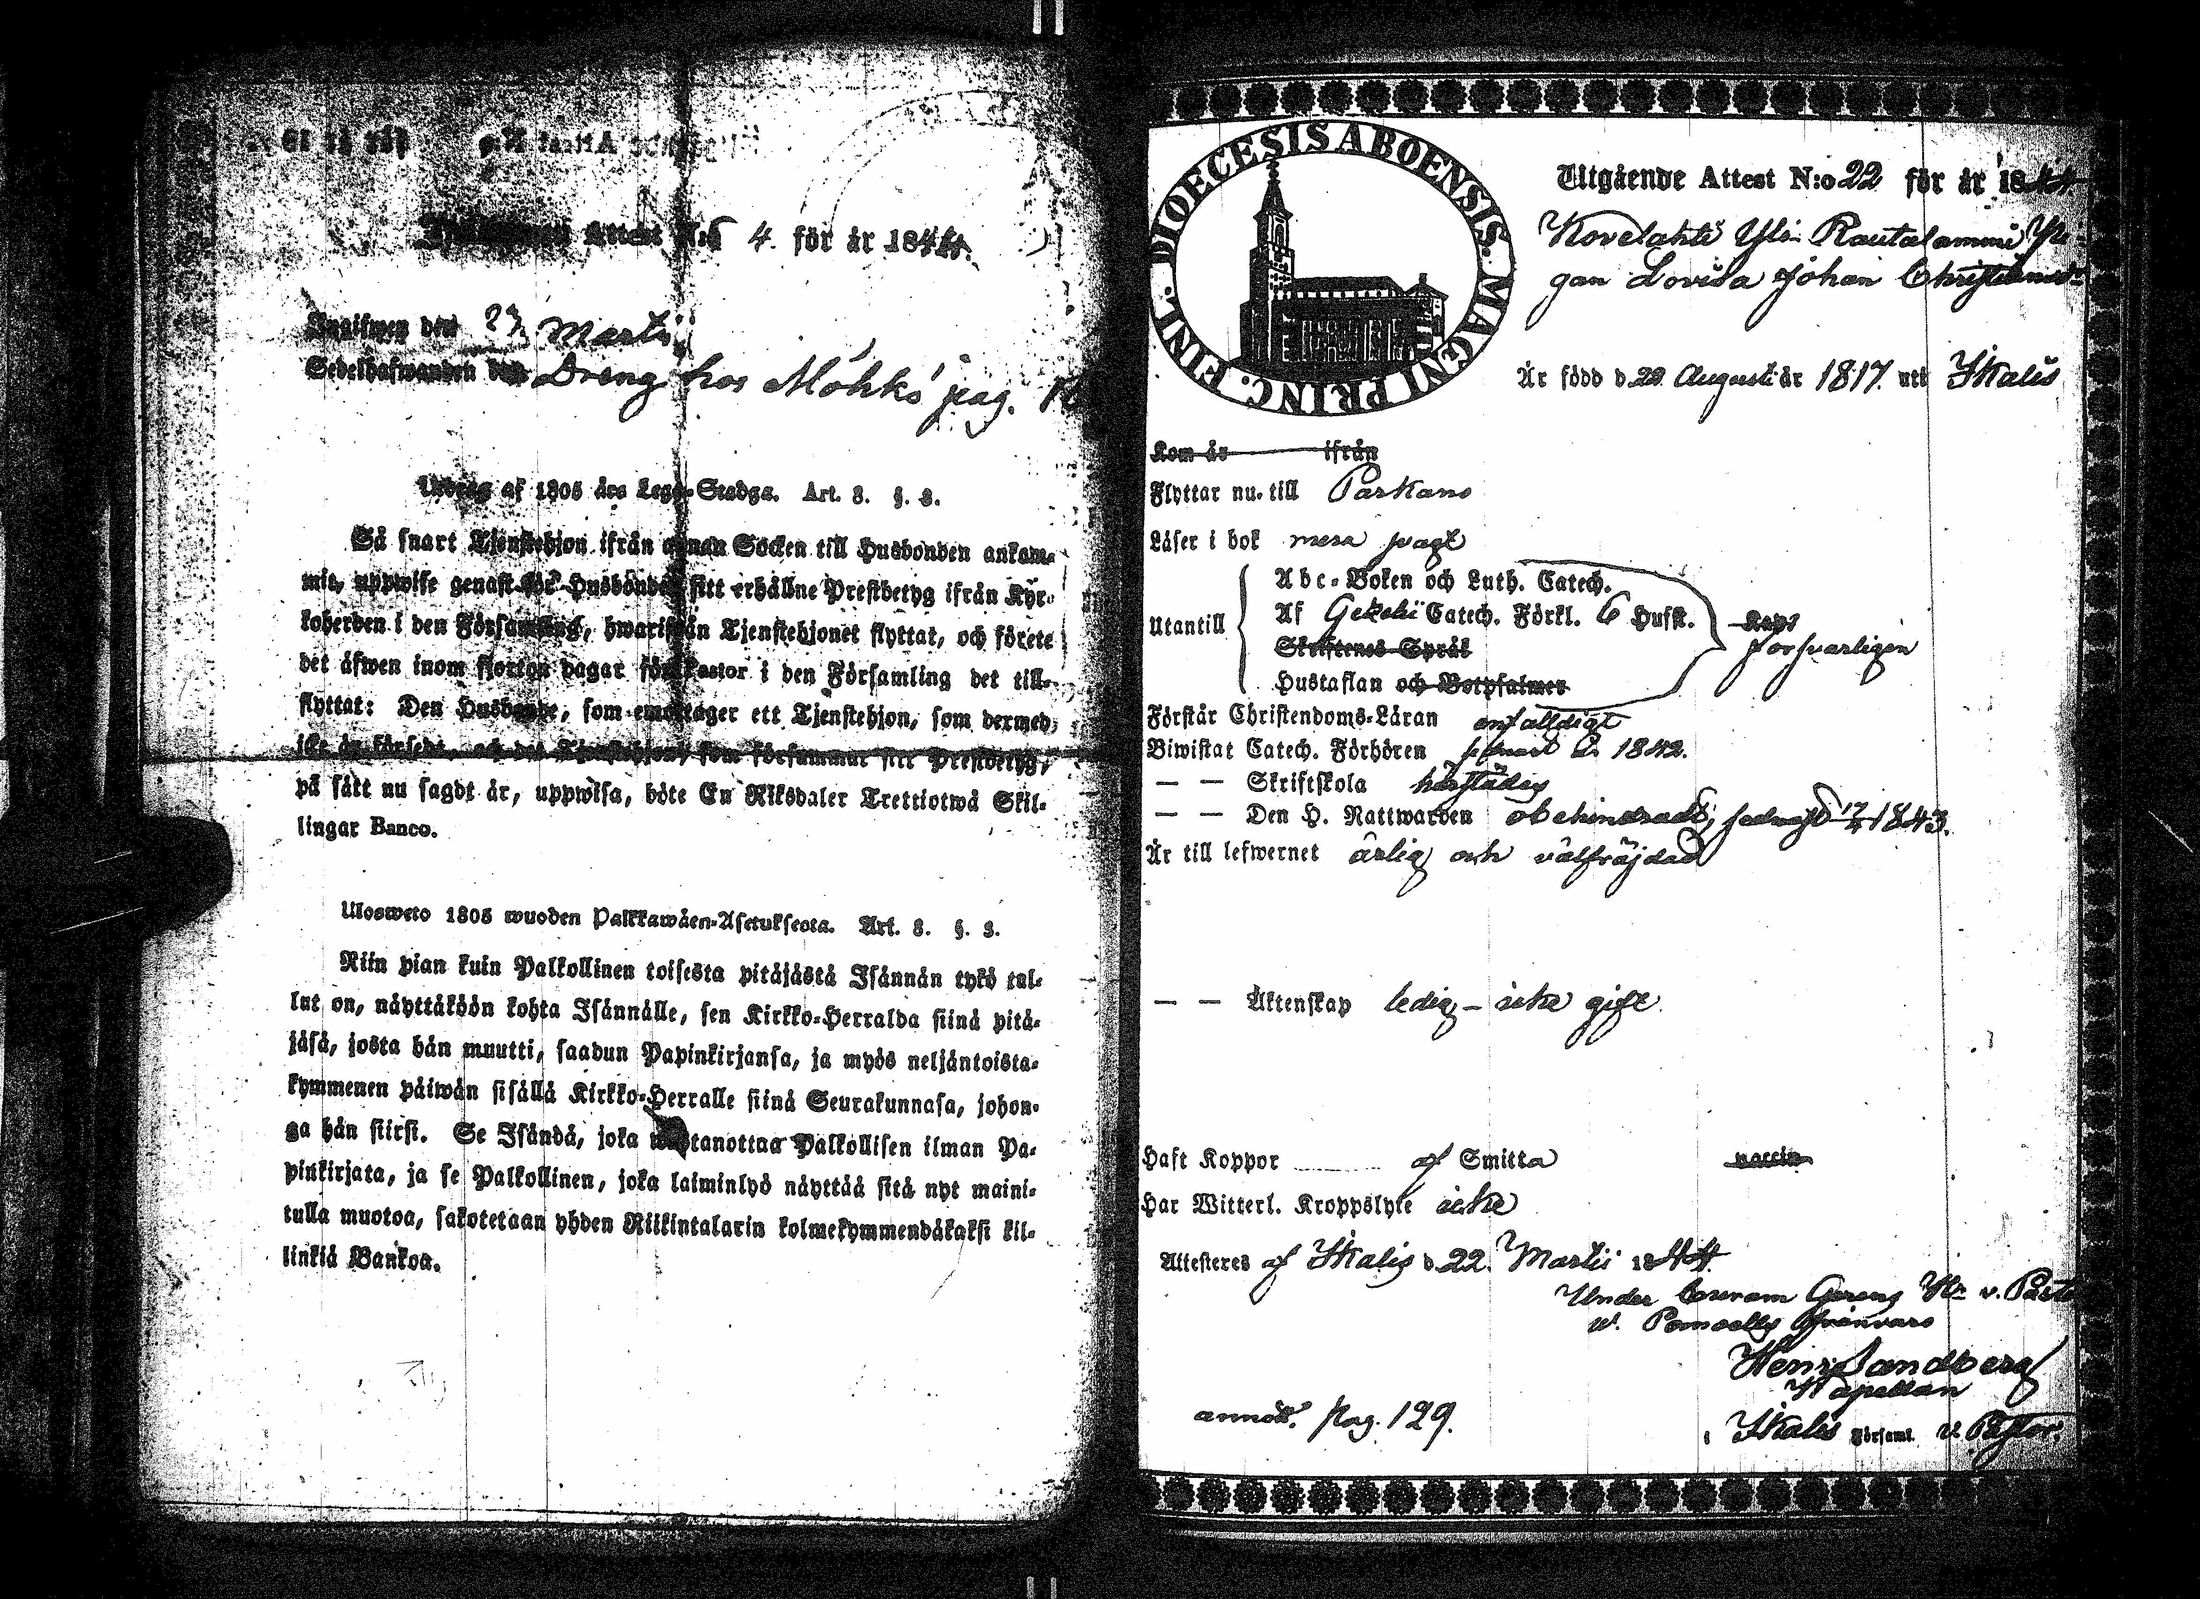 Attest N:o 4. för år 1844.
Ingifwen den 27 Marti
Sedelhafwanden Dreng hos Möhkö pag.
Utdrag af 1805 års Lego-Stadga. Art. 3. §. 3.
Så snart Tjenstehjon ifrån annan Socken till Husbonden ankom-
mit, uppwise genast för Husbonden sitt erhållne Prestbetyg ifrån Kyr-
koherden i den Församling, hwarifrån Tjenstehjonet flyttat, och förete
det äfwen inom fjorton dagar för Pastor i den Församling det till-
flyttat: Den Husbonde, som emottager ett Tjenstehjon, som dermed
icke är försedt, och det Tjenstehjon, som försummar sitt Prestbetyg,
på sätt nu sagdt är, uppwisa, böte En Riksdaler Trettiotwå Skil-
lingar Banco.
Ulosweto 1805 wuoden Palkkawäen-Asetuksesta. Art. 3. §. 3.
Niin pian kuin Palkollinen toisesta pitäjästä Isännän tykö tul-
lut on, näyttäköön kohta Isännälle, sen Kirkko-Herralda siinä pitä-
jäsä, josta hän muutti, saadun Papinkirjansa, ja myös neljäntoista-
kymmenen päiwän sisällä Kirkko-Herralle siinä Seurakunnasa, johon-
ga hän siirsi. Se Isändä, joka wastanottaa Palkollisen ilman Pa-
pinkirjata, ja se Palkollinen, joka laiminlyö näyttää sitä nyt maini-
tulla muotoa, sakotetaan yhden Riikintalarin kolmekymmendäkaksi kil-
linkiä Bankoa.
DIOECESIS ABOENSIS. MAGNI PRINC. FINL.
Utgående Attest N:o 22 för år 1844
Kovelahti Yli-Rautalammi Pi-
gan Lovisa Johan Christiansdr
Är född d. 29 Augusti år 1817. uti Ikalis
Kom år ifrån
Flyttar nu till Parkano
Läser i bok mera swagt
Utantill
Abc-Boken och Luth. Catech.
Af Gezelii Catech. Förkl. 6 Hufst.
Skriftenes Språk
Hustaflan och Botpsalmer
försvarligen
Förstår Christendoms-Läran enfalldigt
Biwistat Catech. Förhören senast år 1842.
— — Skriftskola härstädes
— — Den H. Nattwarden obehindrad; sednast 17/4 1843.
Är till lefwernet ärlig och välfräjdad
— — Äktenskap ledig – icke gift.
Haft Koppor af Smitta vaccin
Har Witterl. Kroppslyte icke
Attesteres af Ikalis d. 22. Martii 1844.
Under Hr v. Past
frånvaro
Henr Sandberg
Kapellan
i Ikalis Församl. v. Pastor.
annot. Pag. 129.